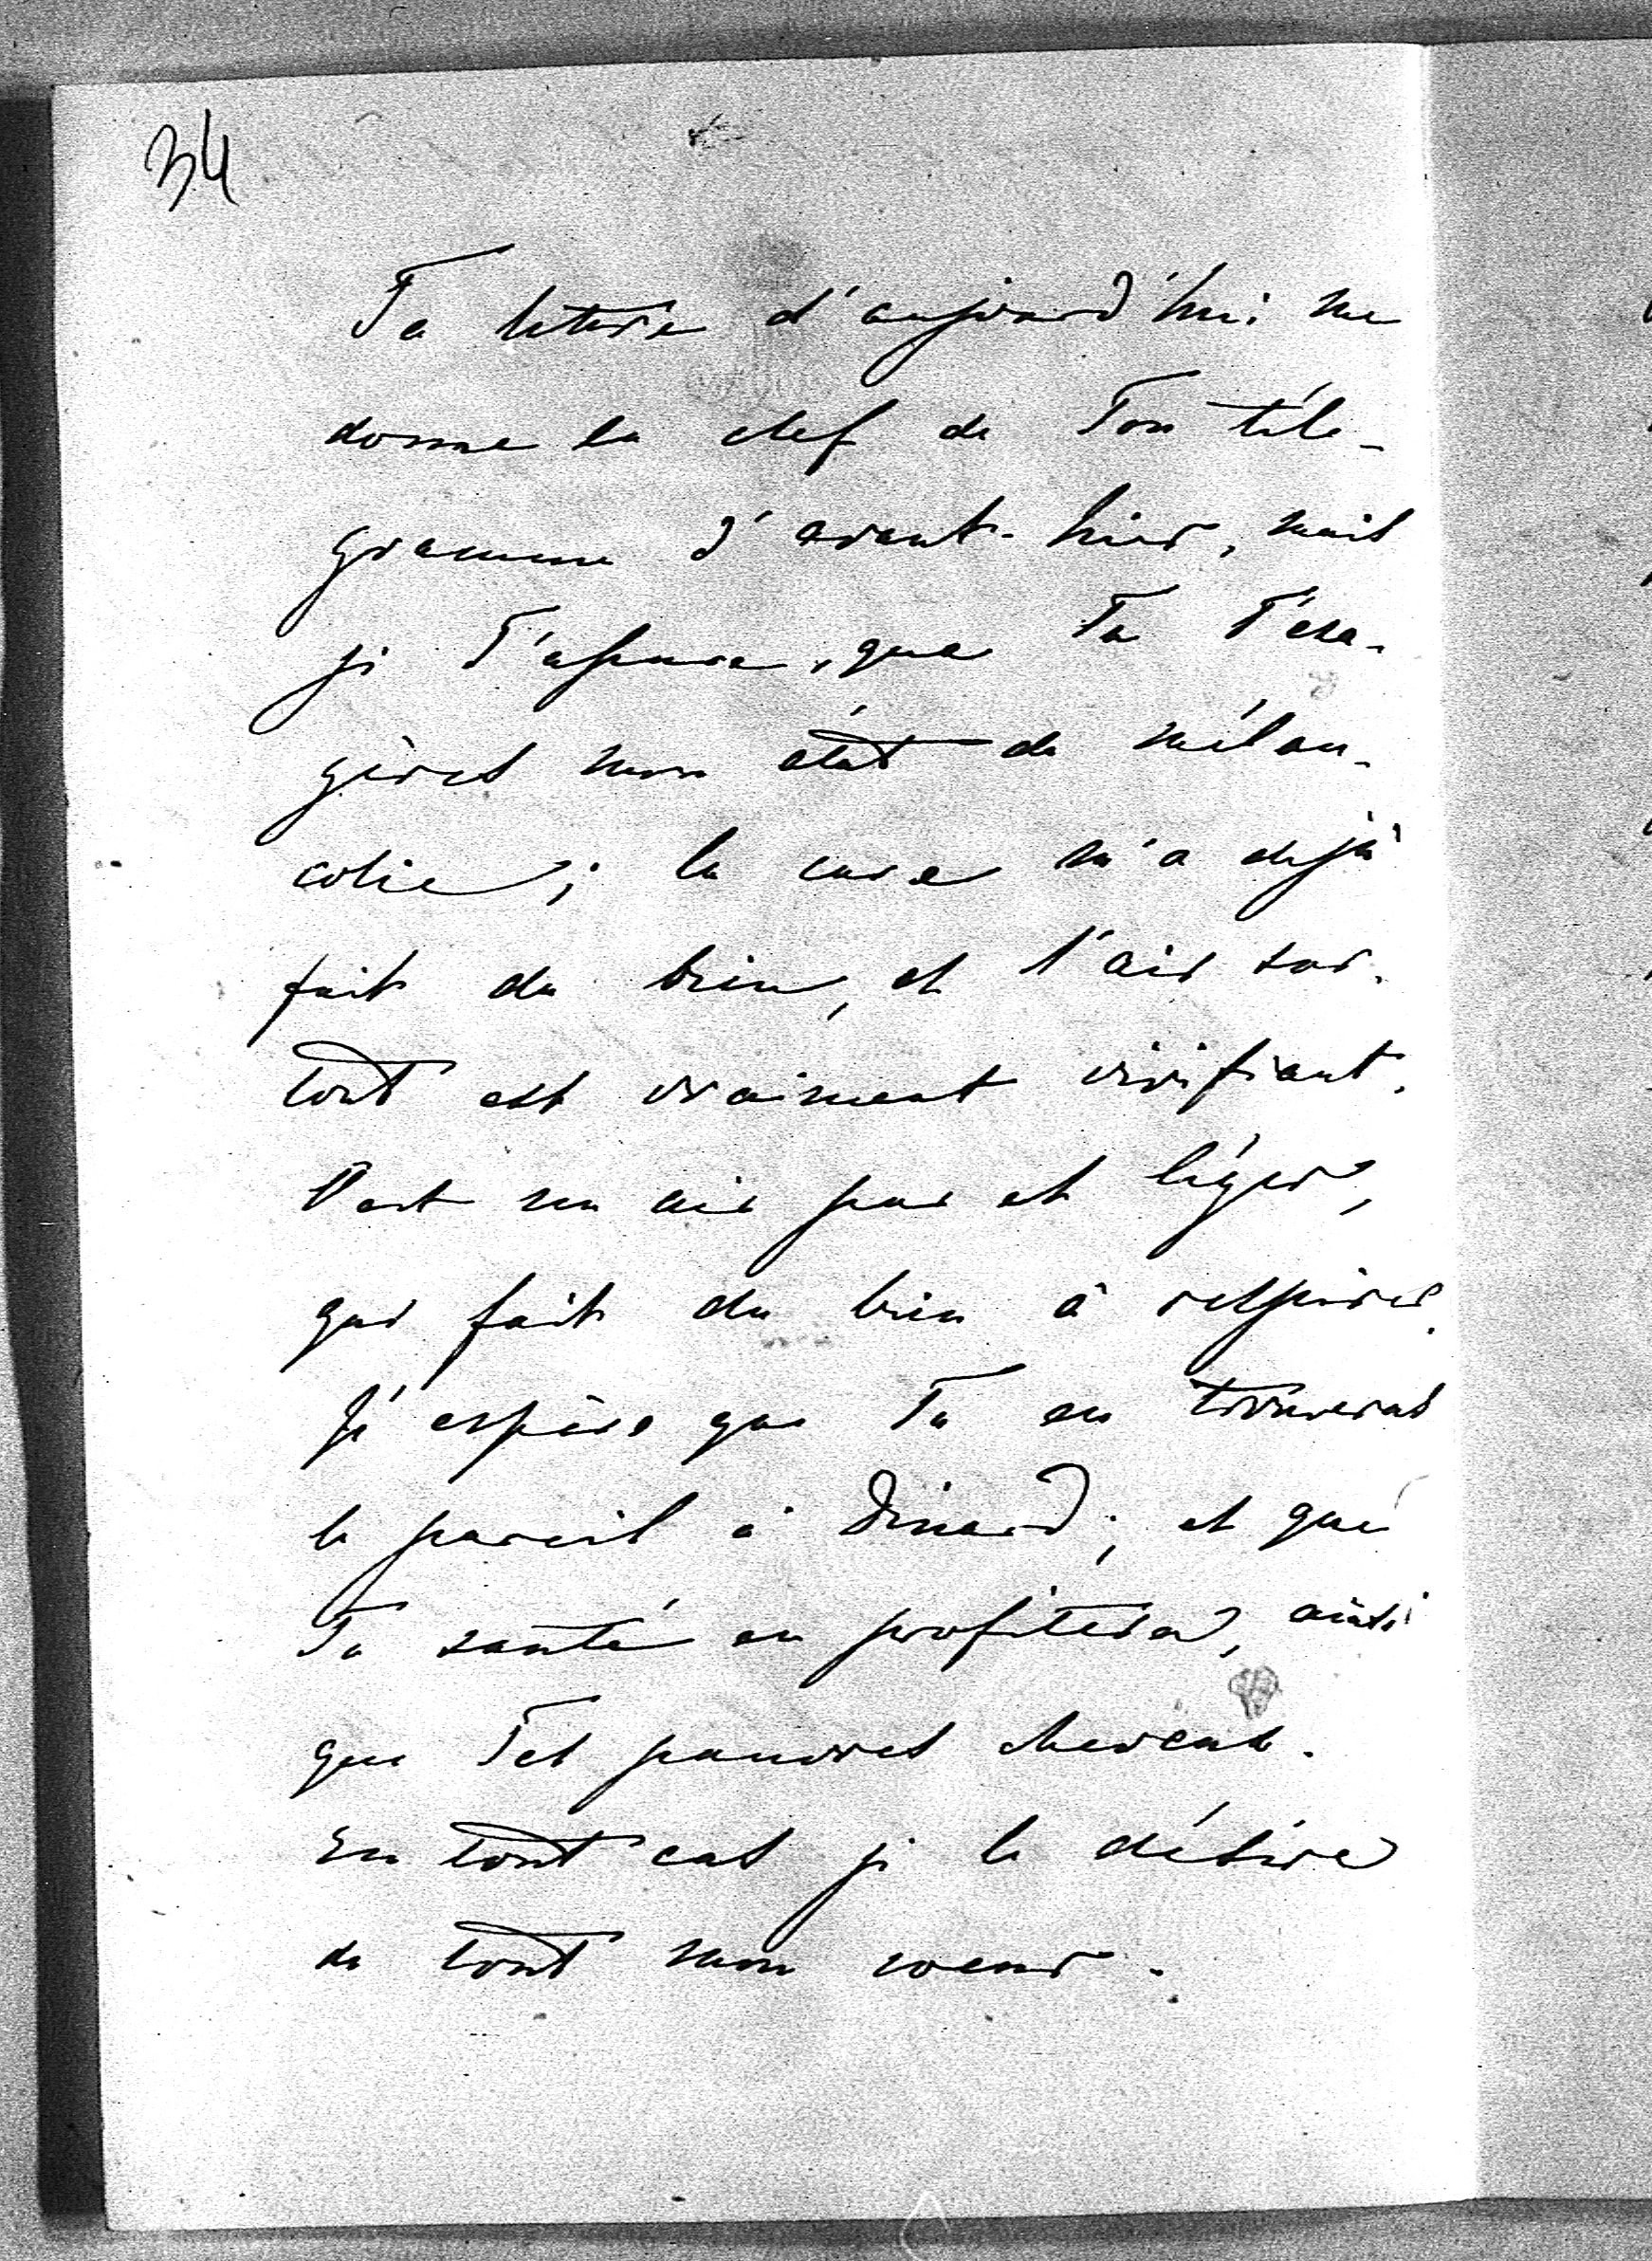 34
Ta lettre d'aujourd'hui me
donne la clef de Ton télé-
gramme d'avant-hier, mais
je T'assure, que Tu T'exa-
gères mon état de mélan-
colie; la cure m'a déjà
fait du bien, et l'air sur-
tout est vraiment vivifiant.
C'est un air pur et léger,
qui fait du bien à respirer.
J'espère que Tu en trouveras
le pareil à Dinard; et que
Ta santé en profitera, ainsi
que Tes pauvres cheveux.
En tout cas je le désire
de tout mon coeur.